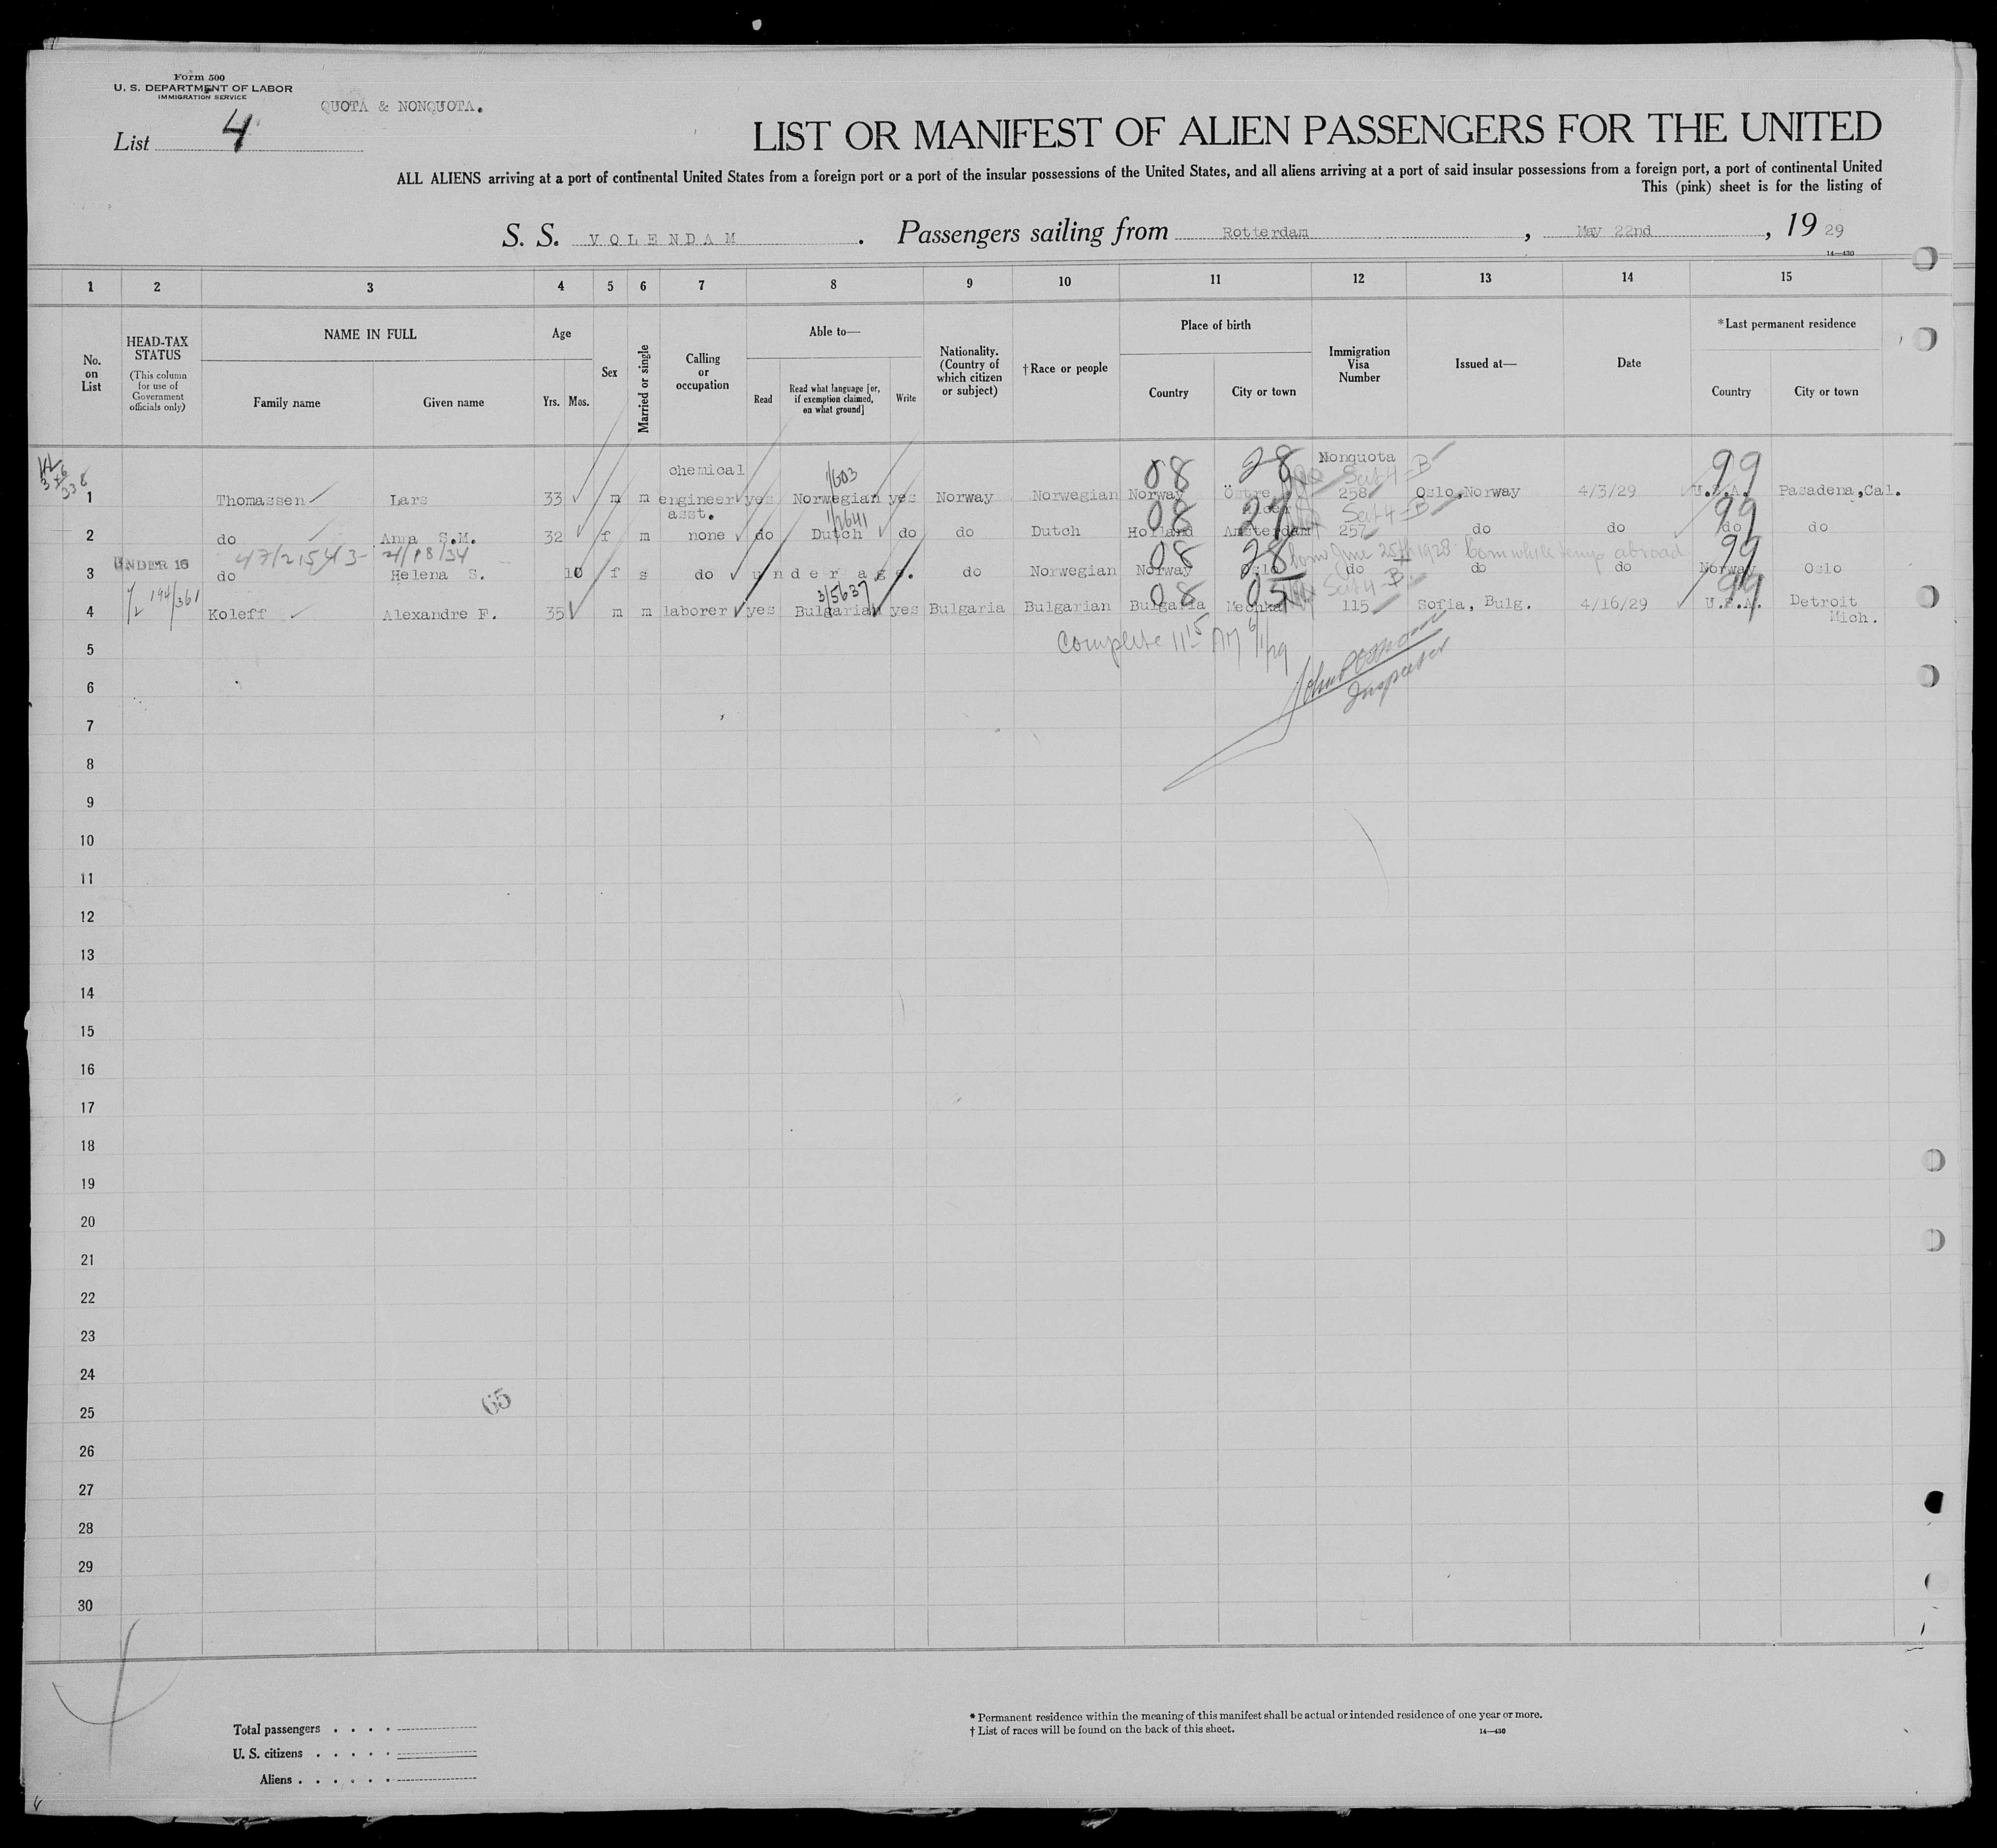 Form 500
U. S. DEPARTMENT OF LABOR
IMMIGRATION SERVICE
QUOTA & NONQUOTA.
List 4
LIST OR MANIFEST OF ALIEN PASSENGERS FOR THE UNITED
ALL ALIENS arriving at a port of continental United States from a foreign port or a port of the insular possessions of the United States, and all aliens arriving at a port of said insular possessions from a foreign port, a port of continental United
This (pink) sheet is for the listing of
S. S. VOLENDAM . Passengers sailing from Rotterdam , May 22nd , 19 29
14—430
1 2 3 4 5 6 7 8 9 10 11 12 13 14 15
No. on List
HEAD-TAX STATUS
(This column for use of Government officials only)
NAME IN FULL
Family name Given name
Age
Yrs. Mos.
Sex
Married or single
Calling or occupation
Able to—
Read
Read what language [or, if exemption claimed, on what ground]
Write
Nationality. (Country of which citizen or subject)
†Race or people
Place of birth
Country City or town
Immigration Visa Number
Issued at—
Date
*Last permanent residence
Country City or town
chemical 1/603 08 28 Nonquota Sect 4-B 99
1 Thomassen Lars 33 m m engineer yes Norwegian yes Norway Norwegian Norway Östre 258 Oslo,Norway 4/3/29 U.S.A. Pasadena,Cal.
asst. 1/2641 08 27 Sect 4-B 99
2 do Anna S.M. 32 f m none do Dutch do do Dutch Holland Amsterdam 257 do do do do
UNDER 16 08 28 born June 25th 1928 born while temp abroad 99
3 do Helena S. 10 f s do under age. do Norwegian Norway Oslo do do do Norway Oslo
194/361 3/5637 08 05 Sect 4-B 99
4 Koleff Alexandre F. 35 m m laborer yes Bulgarian yes Bulgaria Bulgarian Bulgaria Mechka 115 Sofia, Bulg. 4/16/29 U.S.A. Detroit
Mich.
Complete 11 15 AM 6/1/29
Inspector
5
6
7
8
9
10
11
12
13
14
15
16
17
18
19
20
21
22
23
24
65
25
26
27
28
29
30
Total passengers . . . .
U. S. citizens . . . . .
Aliens . . . . . .
* Permanent residence within the meaning of this manifest shall be actual or intended residence of one year or more.
† List of races will be found on the back of this sheet.
14—430